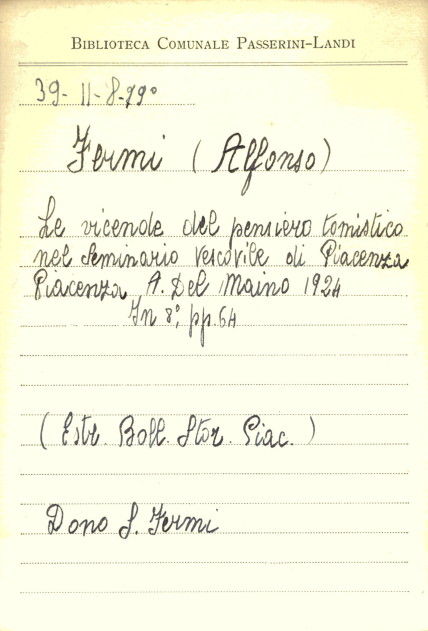 BIBLIOTECA COMUNALE PASSERINI-LANDI
39-11-8-79°
Fermi (Alfonso)
Le vicende del pensiero tomistico
nel Seminario Vescovile di Piacenza
Piacenza A. Del Maino 1924
In 8°, pp. 64
(Estr. Boll. Stor. Piac.)
Dono S. Fermi